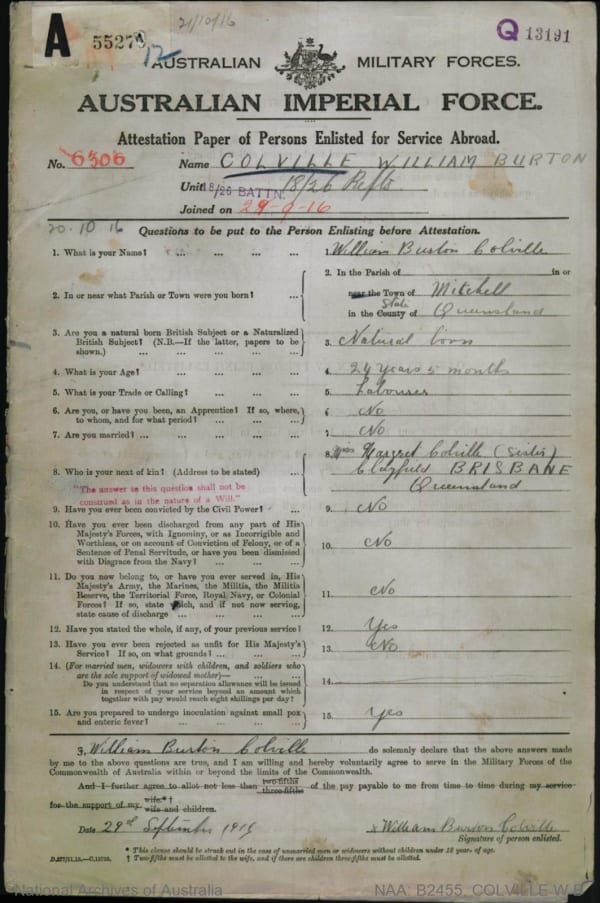 21/10/16
A 55274 Q 13191
12
AUSTRALIAN MILITARY FORCES.
AUSTRALIAN IMPERIAL FORCE.
Attestation Paper of Persons Enlisted for Service Abroad.
No. 6306 Name COLVILLE WILLIAM BURTON
Unit 18/26 BATTN. 18/26 Refts.
Joined on 29-9-16
20.10.16 Questions to be put to the Person Enlisting before Attestation.
1. What is your Name? ... ... ... ... William Burton Colville
2. In or near what Parish or Town were you born? ... 2. In the Parish of in or
near the Town of Mitchell
State
in the County of Queensland
3. Are you a natural born British Subject or a Naturalized
British Subject? (N.B.—If the latter, papers to be
shown.) ... ... ... ... 3. Natural born
4. What is your Age? ... ... ... ... 4. 24 years 5 months
5. What is your Trade or Calling? ... ... ... 5. Labourer
6. Are you, or have you been, an Apprentice? If so, where,
to whom, and for what period? ... ... ... 6. No
7. Are you married? ... ... ... ... ... 7. No
8. Who is your next of kin? (Address to be stated) ... 8. Margret Colville (Sister)
Clayfield BRISBANE
Queensland
"The answer to this question shall not be
construed as in the nature of a Will."
9. Have you ever been convicted by the Civil Power? ... 9. No
10. Have you ever been discharged from any part of His
Majesty's Forces, with Ignominy, or as Incorrigible and
Worthless, or on account of Conviction of Felony, or of a
Sentence of Penal Servitude, or have you been dismissed
with Disgrace from the Navy? ... ... ... 10. No
11. Do you now belong to, or have you ever served in, His
Majesty's Army, the Marines, the Militia, the Militia
Reserve, the Territorial Force, Royal Navy, or Colonial
Forces? If so, state which, and if not now serving,
state cause of discharge ... ... ... ... 11. No
12. Have you stated the whole, if any, of your previous service? 12. Yes
13. Have you ever been rejected as unfit for His Majesty's
Service? If so, on what grounds? ... ... ... 13. No
14. (For married men, widowers with children, and soldiers who
are the sole support of widowed mother)—
Do you understand that no separation allowance will be issued
in respect of your service beyond an amount which
together with pay would reach eight shillings per day? 14.
15. Are you prepared to undergo inoculation against small pox
and enteric fever? ... ... ... ... 15. Yes
I, William Burton Colville do solemnly declare that the above answers made
by me to the above questions are true, and I am willing and hereby voluntarily agree to serve in the Military Forces of the
Commonwealth of Australia within or beyond the limits of the Commonwealth.
And I further agree to allot not less than two-fifths three-fifths of the pay payable to me from time to time during my service
for the support of my wife.*† wife and children.
Date 29th September 1916 x William Burton Colville
Signature of person enlisted.
* This clause should be struck out in the case of unmarried men or widowers without children under 18 years of age.
† Two-fifths must be allotted to the wife, and if there are children three-fifths must be allotted.
National Archives of Australia NAA: B2455, COLVILLE W B